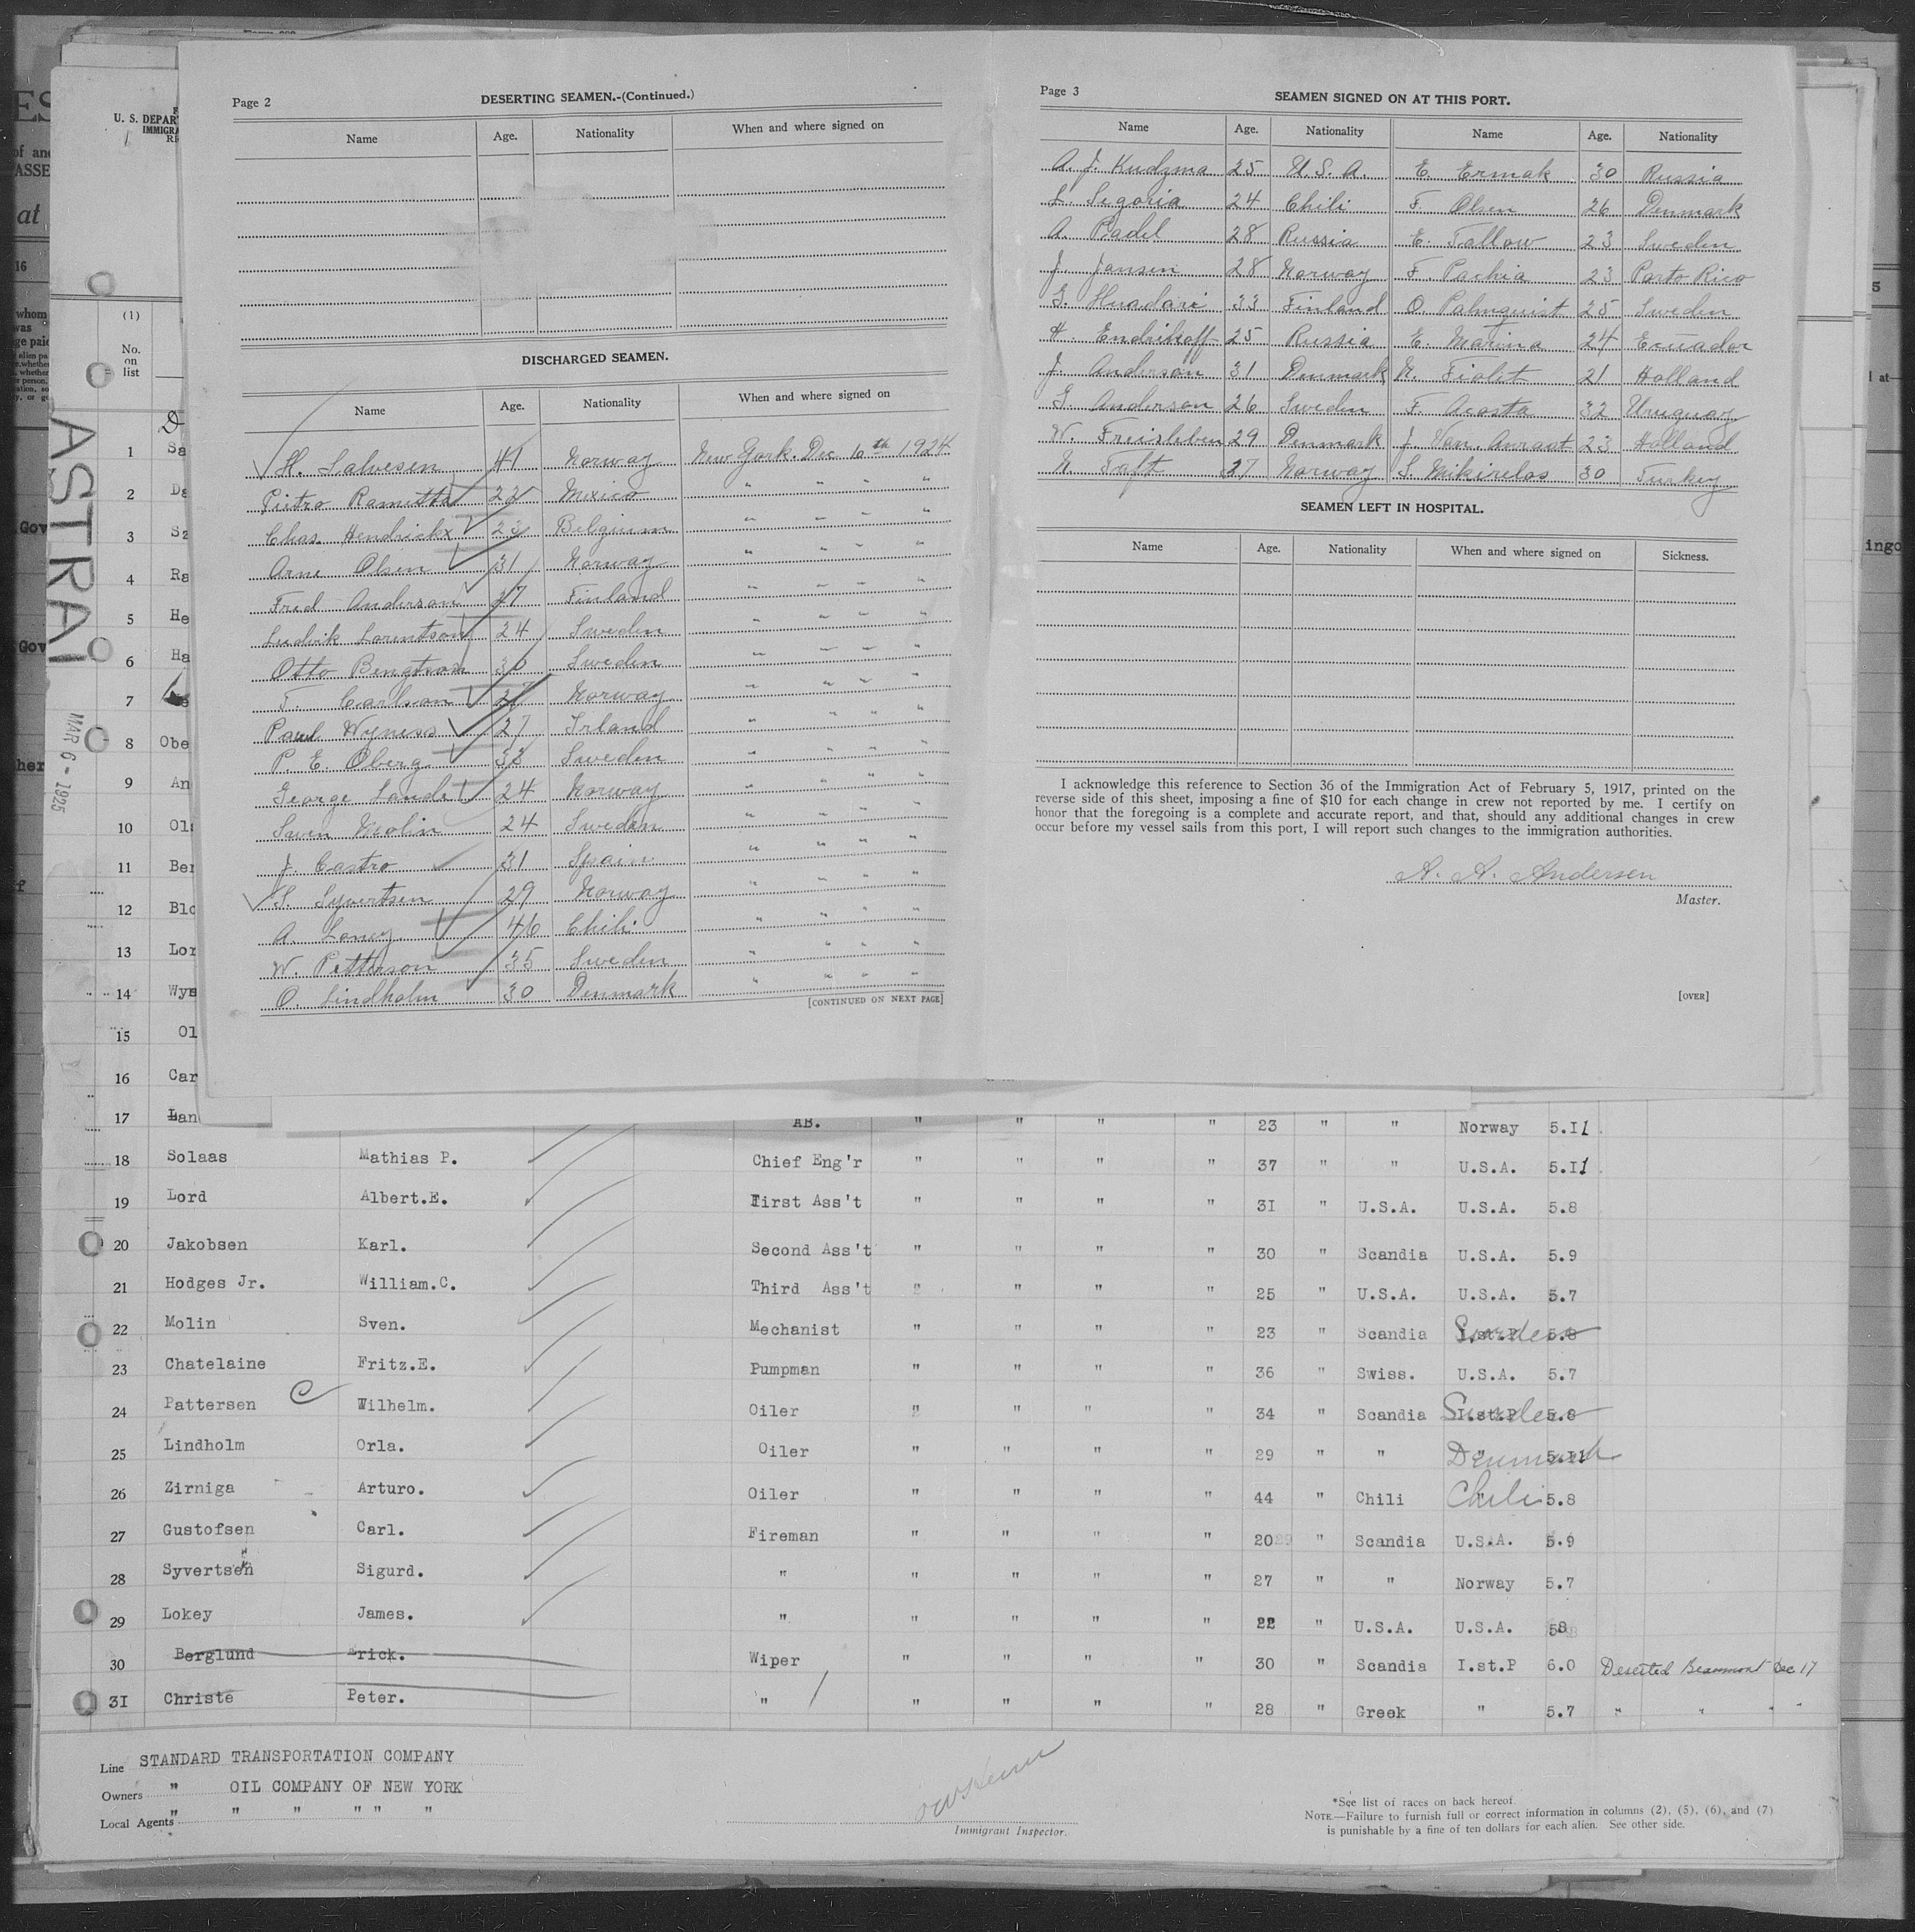 Page 2
DESERTING SEAMEN.-(Continued.)
Name Age. Nationality When and where signed on
DISCHARGED SEAMEN.
Name Age. Nationality When and where signed on
H. Salvesen 41 Norway New York Dec 10th 1924
Pietro Rametta 22 Mexico " " " "
Chas. Hendrickx 23 Belgium " " " "
Arne Olsen 31 Norway " " " "
Fred Anderson 27 Finland " " " "
Ludvik Lorentson 24 Sweden " " " "
Otto Bengtson 30 Sweden " " " "
T. Carlson 27 Norway " " " "
Paul Wyness 27 Irland " " " "
P. E. Oberg 33 Sweden " " " "
George Landet 24 Norway " " " "
Swen Molin 24 Sweden " " " "
J. Castro 31 Spain " " " "
S. Syvertsen 29 Norway " " " "
A. 46 Chili " " " "
W. Petterson 35 Sweden " " " "
O. Lindholm 30 Denmark " " " "
[CONTINUED ON NEXT PAGE]
Page 3
SEAMEN SIGNED ON AT THIS PORT.
Name Age. Nationality Name Age. Nationality
A. J. Kudzma 25 U.S.A. E. Ermak 30 Russia
L. Segoria 24 Chili F. Olsen 26 Denmark
A. Padel 28 Russia E. Tallow 23 Sweden
J. Jansen 28 Norway F. Pachia 23 Porto Rico
33 Finland O. Palmquist 25 Sweden
H. Endrikoff 25 Russia E. Marina 24 Ecuador
J. Anderson 31 Denmark N. Fiolet 21 Holland
G. Anderson 26 Sweden F. Acosta 32 Uruguay
W. Freisleben 29 Denmark J. Van Anraat 23 Holland
N. Taft 37 Norway S. Mikirelos 30 Turkey
SEAMEN LEFT IN HOSPITAL.
Name Age. Nationality When and where signed on Sickness.
I acknowledge this reference to Section 36 of the Immigration Act of February 5, 1917, printed on the
reverse side of this sheet, imposing a fine of $10 for each change in crew not reported by me. I certify on
honor that the foregoing is a complete and accurate report, and that, should any additional changes in crew
occur before my vessel sails from this port, I will report such changes to the immigration authorities.
A. A. Andersen
Master.
[OVER]
U. S. DEPAR
IMMIGRA
(1)
No.
on
list
ASTRAL
MAR 6 - 1925
1 Sa
2 Da
3 Sz
4 Ra
5 He
6 Ha
7
8 Obe
9 An
10 Ols
11 Ber
12 Blo
13 Lor
14 Wyn
15 Ol
16 Car
17 Lan AB. " " " " 23 " " Norway 5.11
18 Solaas Mathias P. Chief Eng'r " " " " 37 " " U.S.A. 5.11
19 Lord Albert.E. First Ass't " " " " 31 " U.S.A. U.S.A. 5.8
20 Jakobsen Karl. Second Ass't " " " " 30 " Scandia U.S.A. 5.9
21 Hodges Jr. William.C. Third Ass't " " " " 25 " U.S.A. U.S.A. 5.7
22 Molin Sven. Mechanist " " " " 23 " Scandia I.st.P Sweden 5.8
23 Chatelaine Fritz.E. Pumpman " " " " 36 " Swiss. U.S.A. 5.7
24 Pattersen C Wilhelm. Oiler " " " " 34 " Scandia I.st.P Sweden 5.8
25 Lindholm Orla. Oiler " " " " 29 " " " Denmark 5.11
26 Zirniga Arturo. Oiler " " " " 44 " Chili " Chili 5.8
27 Gustofsen Carl. Fireman " " " " 20 29 " Scandia U.S.A. 5.9
28 Syvertsen Sigurd. " " " " " 27 " " Norway 5.7
29 Lokey James. " " " " " 22 " U.S.A. U.S.A. 58
30 Berglund Brick. Wiper " " " " 30 " Scandia I.st.P 6.0 Deserted Beaumont Dec 17
31 Christe Peter. " " " " " 28 " Greek " 5.7 " " "
Line STANDARD TRANSPORTATION COMPANY
Owners " OIL COMPANY OF NEW YORK
Local Agents " " " " " "
Immigrant Inspector.
*See list of races on back hereof
NOTE.—Failure to furnish full or correct information in columns (2), (5), (6), and (7)
is punishable by a fine of ten dollars for each alien. See other side.